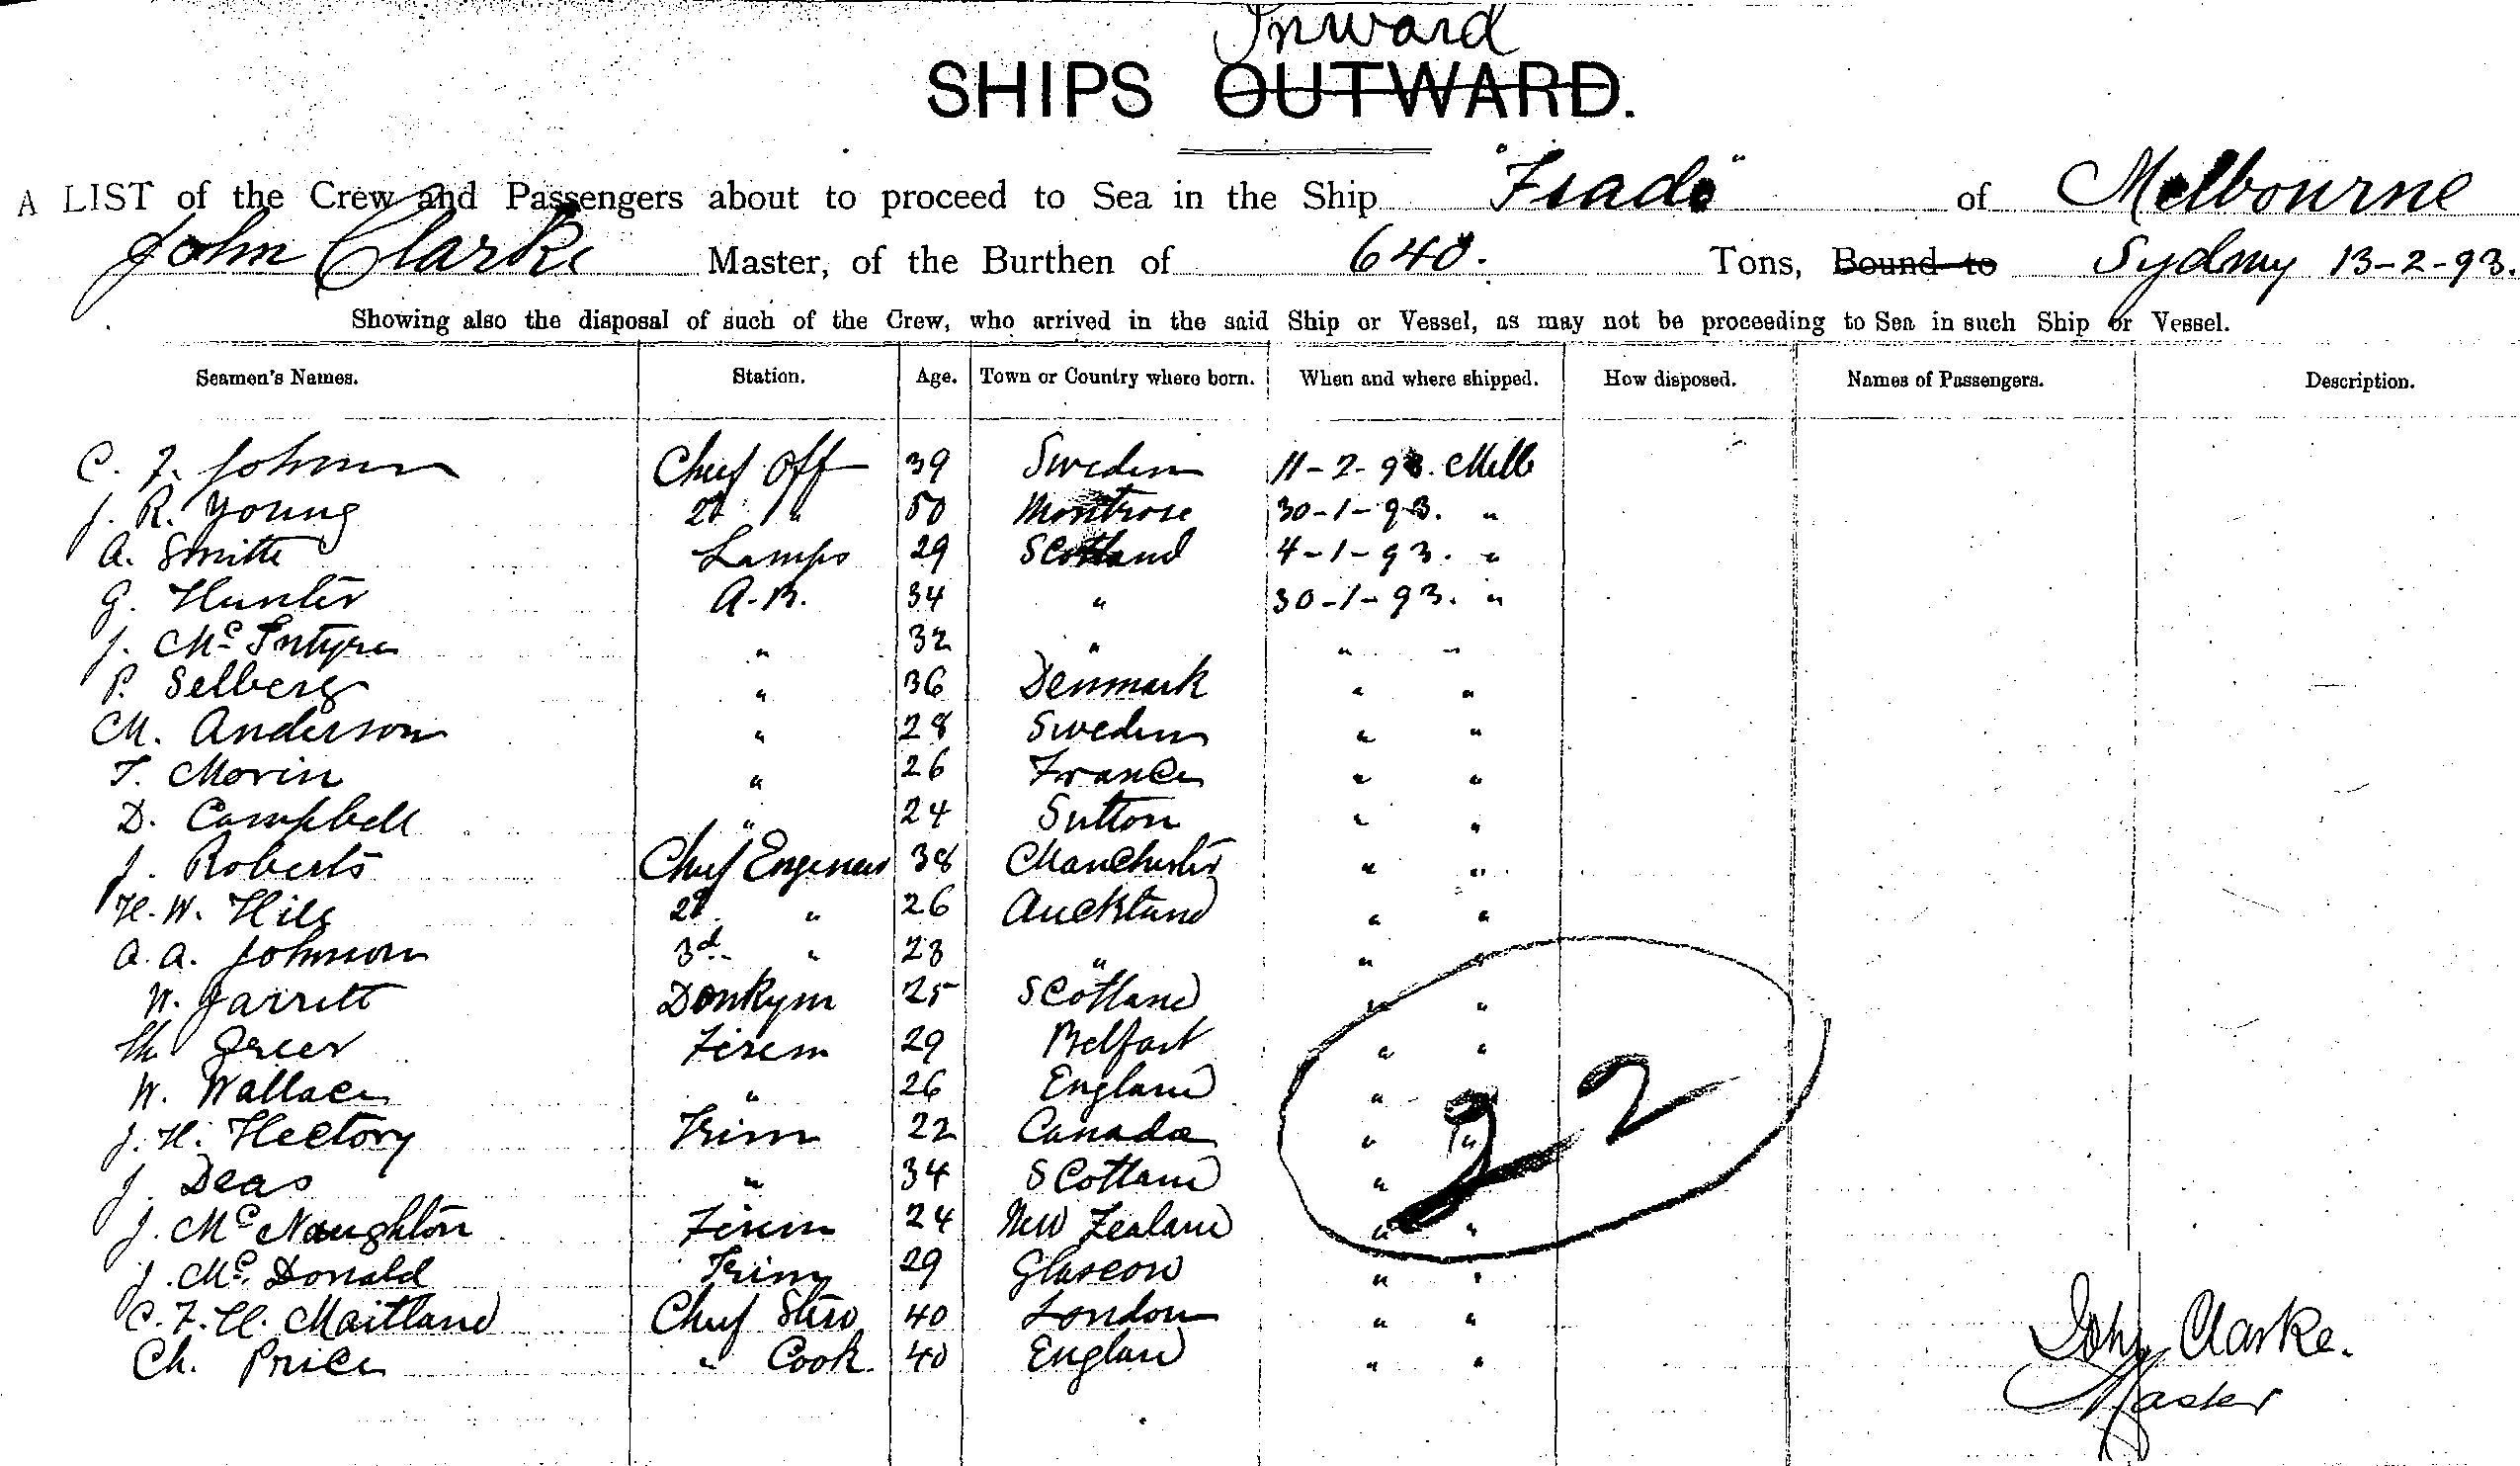 Inward
SHIPS OUTWARD.
A LIST of the Crew and Passengers about to proceed to Sea in the Ship " " of Melbourne
John Clarke Master, of the Burthen of 640. Tons, Bound to Sydney 13-2-93.
Showing also the disposal of such of the Crew, who arrived in the said Ship or Vessel, as may not be proceeding to Sea in such Ship or Vessel.
Seamen's Names. Station. Age. Town or Country where born. When and where shipped. How disposed. Names of Passengers. Description.
C. F. Johnson Chief Off 39 Sweden 11-2-93. Melb
J. R. Young 2d " 50 Montrose 30-1-93. "
A. Smith Lamps 29 Scotland 4-1-93. "
G. Hunter A.B. 34 " 30-1-93. "
J. McIntyre " 32 " " "
P. Selberg " 36 Denmark " "
M. Anderson " 28 Sweden " "
T. Morin " 26 France " "
D. Campbell " 24 Sutton " "
J. Roberts Chief Engineer 38 Manchester " "
H. W. Hill 2d " 26 Auckland " "
A. A. Johnson 3d " 23 " " "
W. Jarrett Donkym 25 Scotland " "
Th Greer Firem 29 Belfast " "
W. Wallace " 26 England " "
J. H. Hectory Trim 22 Canada " "
J. Deas " 34 Scotland "
J. McNaughton Firem 24 New Zealand " "
J. McDonald Trim 29 Glascow " "
C. F. H. Maitland Chief Stew 40 London " "
Ch. Price " Cook 40 England " "
John Clarke.
Master